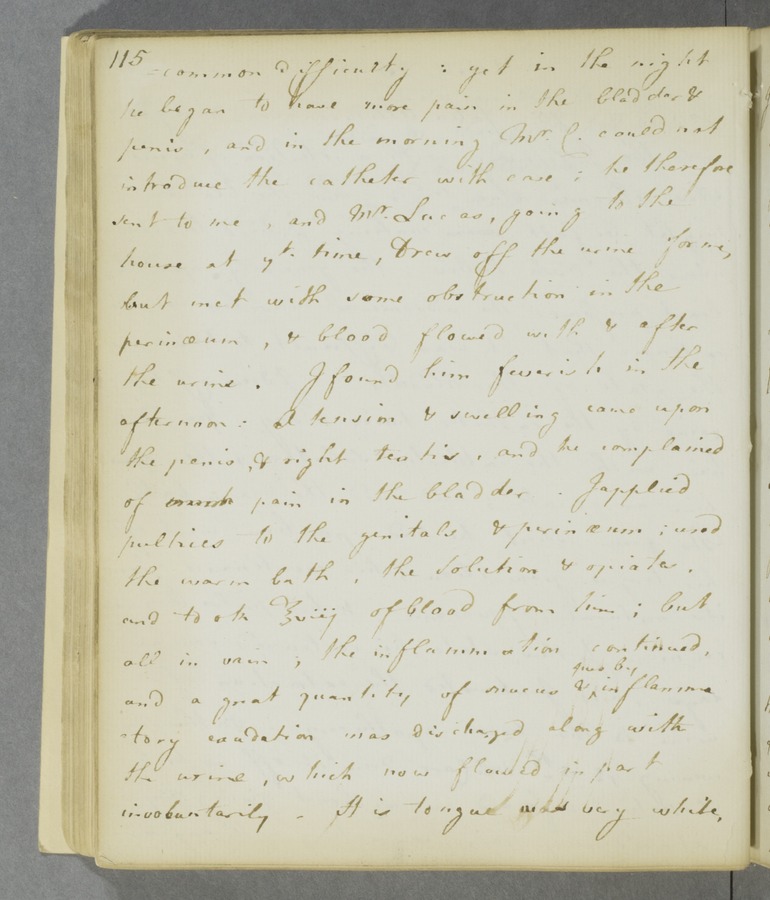 115
=common difficulty : yet in the night
he began to have more pain in the bladder &
penis , and in the morning Mr. C. could not
introduce the catheter with ease ; he therefore
sent to me , and Mr. Lucas, going to the
house at yt. time, Drew off the urine for me,
but met with some obstruction in the
perinæum , & blood flowed with & after
the urine . I found him feverish in the
afternoon : A tension & swelling came upon
the penis & right testis , and he complained
of much pain in the bladder . I applied
pultices to the genitals & perinæum ; used
the warm bath , the solution & opiates .
and took ℥viij of blood from him ; but
all in vain ; the inflammation continued,
and a great quantity of mucus & inflamma
tory exudation was discharged along with
the urine , which now flowed in part
involuntarily . His tongue was very white,